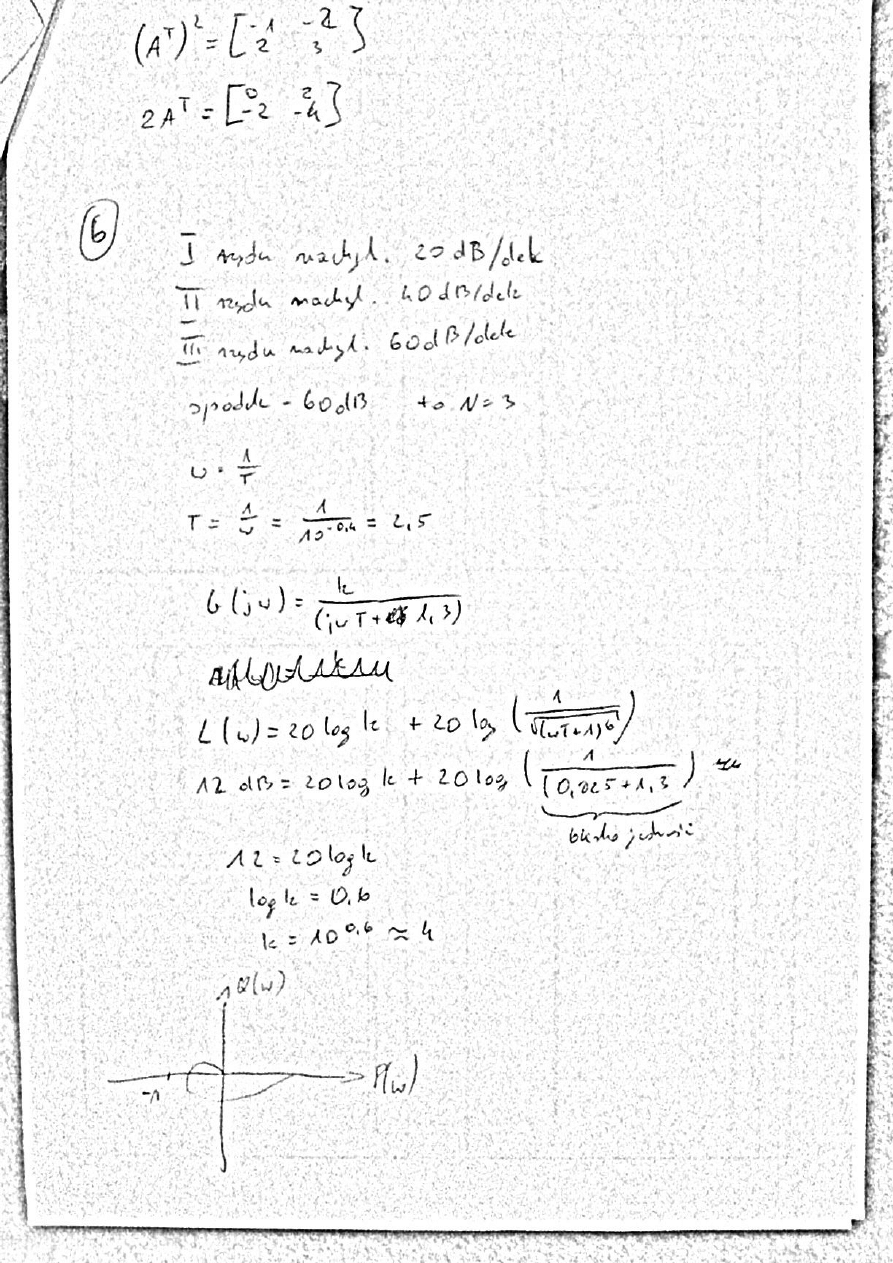 (A^T)^2 = [-1 -2
2 3]
2A^T = [0 2
-2 -4]
6
I rzędu nachyl. 20 dB/dek
II rzędu nachyl. 40 dB/dek
III rzędu nachyl. 60 dB/dek
spadek - 60 dB to N = 3
ω = 1/T
T = 1/ω = 1/10^-0,4 = 2,5
G(jω) = k/(jωT + 1, 3)
L(ω) = 20 log k + 20 log (1/√(ωT+1)^6)
12 dB = 20 log k + 20 log (1/(0,025 + 1, 3)
blisko jedności
12 = 20 log k
log k = 0,6
k = 10^0,6 ≈ 4
Q(ω)
-1
P(ω)